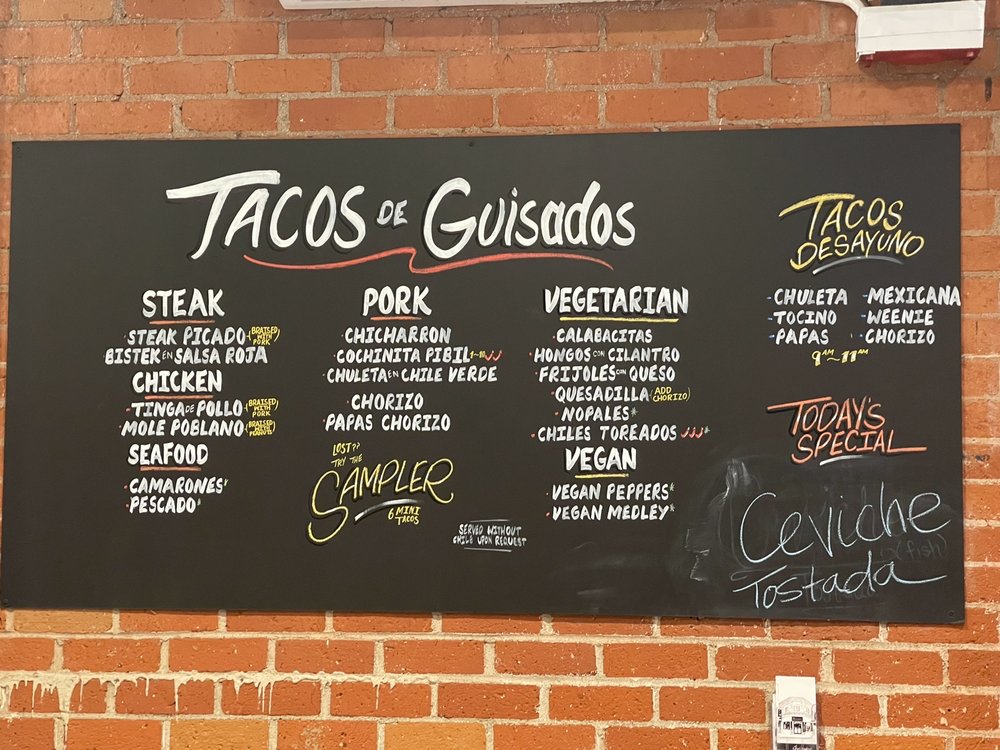 TACOS DE GUISADOS
STEAK
STEAK PICADO (BRAISED WITH PORK)
BISTEK EN SALSA ROJA
CHICKEN
TINGA DE POLLO (BRAISED WITH PORK)
MOLE POBLANO (BRAISED WITH PEANUTS)
SEAFOOD
CAMARONES*
PESCADO*
PORK
CHICHARRON
COCHINITA PIBIL 1~10
CHULETA EN CHILE VERDE
CHORIZO
PAPAS CHORIZO
LOST??
TRY THE
SAMPLER
6 MINI
TACOS
SERVED WITHOUT
CHILE UPON REQUEST
VEGETARIAN
CALABACITAS
HONGOS CON CILANTRO
FRIJOLES CON QUESO
QUESADILLA (ADD CHORIZO)
NOPALES*
CHILES TOREADOS *
VEGAN
VEGAN PEPPERS*
VEGAN MEDLEY*
TACOS
DESAYUNO
-CHULETA -MEXICANA
-TOCINO -WEENIE
-PAPAS -CHORIZO
9AM~11AM
TODAY'S
SPECIAL
Ceviche
(fish)
Tostada